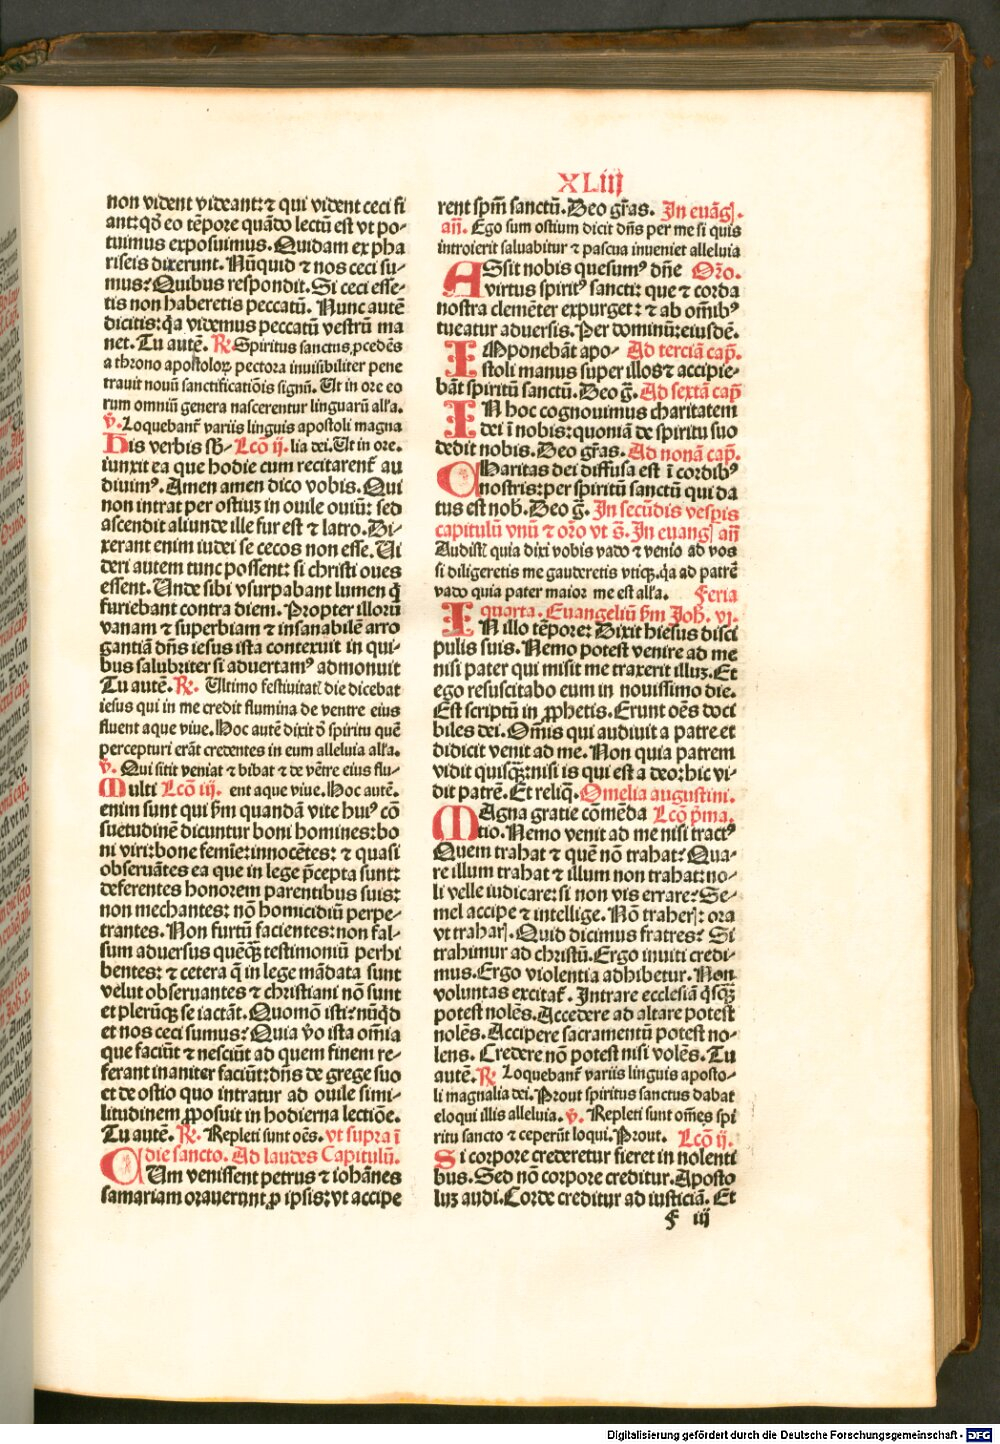 XLIIJ
non vident videant: ⁊ qui vident ceci fi
ant: qd̕ eo tēpore quādo lectū est vt po-
tuimus exposuimus. Quidam ex pha
riseis dixerunt. Nūquid ⁊ nos ceci su-
mus? Quibus respondit. Si ceci esse-
tis non haberetis peccatū. Nunc autē
dicitis: q̄a videmus peccatū vestrū ma
net. Tu autē. ℟. Spiritus sanctus ꝓcedēs
a throno apostoloꝝ pectora inuisibiliter pene
trauit nouū sanctificatiōis signū. Ut in ore eo
rum omniū genera nascerentur linguarū all'a.
℣. Loquebant̄ variis linguis apostoli magna
His verbis sb̄- Lcō ij. lia dei. Ut in ore.
iunxit ea que hodie cum recitarent̄ au
diuimꝰ. Amen amen dico vobis. Qui
non intrat per ostiuꝫ in ouile ouiū: sed
ascendit aliunde ille fur est ⁊ latro. Di-
xerant enim iudei se cecos non esse. Vi
deri autem tunc possent: si christi oues
essent. Unde sibi vsurpabant lumen q̄
furiebant contra diem. Propter illorū
vanam ⁊ superbiam ⁊ insanabilē arro
gantiā dn̄s iesus ista contexuit in qui-
bus salubriter si aduertamꝰ admonuit
Tu autē. ℟. Ultimo festiuitatꝭ die dicebat
iesus qui in me credit flumina de ventre eius
fluent aque viue. Hoc autē dixit d̄ spiritu quē
percepturi erāt credentes in eum alleluia all'a.
℣. Qui sitit veniat ⁊ bibat ⁊ de vētre eius flu-
Multi Lcō iij. ent aque viue. Hoc autē.
enim sunt qui ẜm quandā vite huiꝰ cō
suetudinē dicuntur boni homines: bo
ni viri: bone femīe: innocētes: ⁊ quasi
obseruātes ea que in lege p̄cepta sunt:
deferentes honorem parentibus suis:
non mechantes: nō homicidiū perpe-
trantes. Non furtū facientes: non fal-
sum aduersus quēqꝫ testimoniū perhi
bentes: ⁊ cetera q̄ in lege mādata sunt
velut obseruantes ⁊ christiani nō sunt
et plerūqꝫ se iactāt. Quomō isti? nūqd̕
et nos ceci sumus? Quia v̄o ista om̄ia
que faciūt ⁊ nesciūt ad quem finem re-
ferant inaniter faciūt: dn̄s de grege suo
et de ostio quo intratur ad ouile simi-
litudinem ꝓposuit in hodierna lectiōe.
Tu autē. ℟. Repleti sunt oēs. vt supra ī
die sancto. Ad laudes Capitulū.
CUm venissent petrus ⁊ iohānes
samariam orauerunt ꝓ ipsis: vt accipe
rent spm̄ sanctū. Deo gr̄as. In euāgꝭ.
an̄. Ego sum ostium dicit dn̄s per me si quis
introierit saluabitur ⁊ pascua inueniet alleluia
ASsit nobis quesumꝰ dn̄e Orō.
virtus spiritꝰ sancti: que ⁊ corda
nostra clemēter expurget: ⁊ ab om̄ibꝰ
tueatur aduersis. Per dominū: eiusdē.
IMponebāt apo- Ad terciā cap̄.
stoli manus super illos ⁊ accipie-
bāt spiritū sanctū. Deo g̃. Ad sextā cap̄
IN hoc cognouimus charitatem
dei ī nobis: quoniā de spiritu suo
dedit nobis. Deo gr̄as. Ad nonā cap̄.
CHaritas dei diffusa est ī cordibꝰ
nostris: per spiritū sanctū qui da
tus est nob. Deo g̃. In secūdis vesp̄is
capitulū vnū ⁊ orō vt s̄. In euangꝭ an̄
Audistꝭ quia dixi vobis vado ⁊ venio ad vos
si diligeretis me gauderetis vtiqꝫ. q̄a ad patrē
vado quia pater maior me est all'a. Feria
quarta. Euangeliū ẜm Joh̄. vi.
IN illo tēpore: Dixit hiesus disci
pulis suis. Nemo potest venire ad me
nisi pater qui misit me traxerit illuꝫ. Et
ego resuscitabo eum in nouissimo die.
Est scriptū in ꝓphetis. Erunt oēs doci
biles dei. Om̄is qui audiuit a patre et
didicit venit ad me. Non quia patrem
vidit quisqꝫ: nisi is qui est a deo: hic vi-
dit patrē. Et reliq̄. Omelia augustini.
MAgna gratie cōmēda Lcō p̄ma.
tio. Nemo venit ad me nisi tractꝰ
Quem trahat ⁊ quē nō trahat? Qua-
re illum trahat ⁊ illum non trahat: no-
li velle iudicare: si non vis errare? Se-
mel accipe ⁊ intellige. Nō traherꝭ: ora
vt traharꝭ. Quid dicimus fratres? Si
trahimur ad christū. Ergo inuiti credi-
mus. Ergo violentia adhibetur. Non
voluntas excitat̄. Intrare ecclesiā q̄sqꝫ
potest nolēs. Accedere ad altare potest
nolēs. Accipere sacramentū potest no-
lens. Credere nō potest nisi volēs. Tu
autē. ℟ Loquebant̄ variis linguis aposto-
li magnalia dei. Prout spiritus sanctus dabat
eloqui illis alleluia. ℣. Repleti sunt om̄es spi
ritu sancto ⁊ ceperūt loqui. Prout. Lcō ij.
Si corpore crederetur fieret in nolenti
bus. Sed nō corpore creditur. Aposto
luꝫ audi. Corde creditur ad iusticiā. Et
f iij
Digitalisierung gefördert durch die Deutsche Forschungsgemeinschaft - DFG